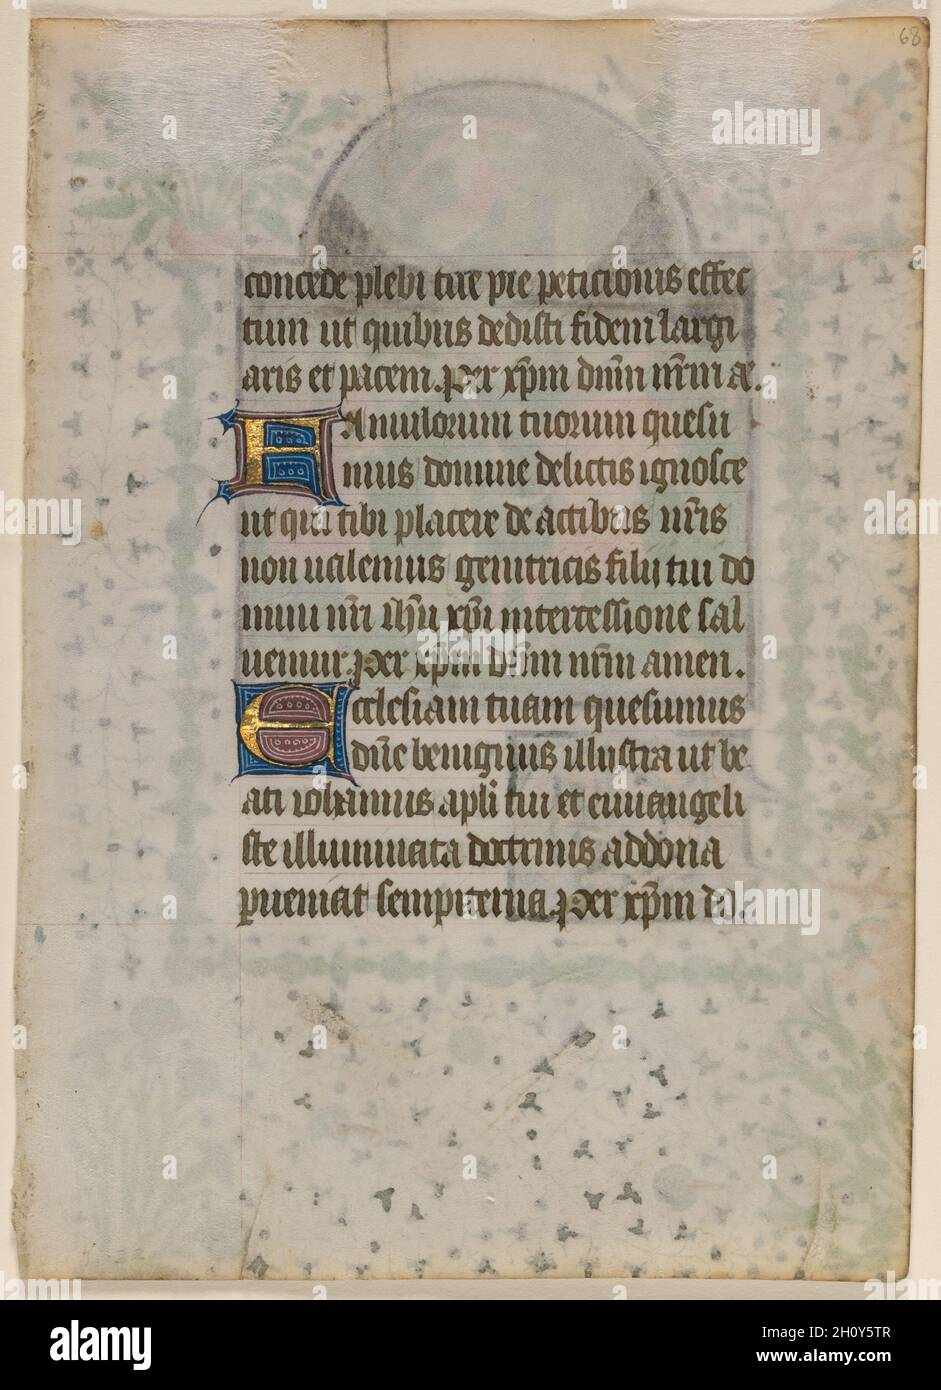 68
concede plebi tue pie peticionis effec
tum ut quibus dedisti fidem largi
aris et pacem. Per xp̄m dn̄m nr̄m ac.
Famulorum tuorum quesu
mus domine delictis ignosce
ut qui tibi placere de actibus nr̄is
non ualemus genitricis filij tui do
mini nr̄i ihū xp̄i intercessione sal
uemur. Per xp̄m dn̄m nr̄m amen.
Ecclesiam tuam quesumus
dn̄e benignus illustra ut be
ati iohannis apl̄i tui et euuangeli
ste illuminata doctrinis ad dona
ꝑueniat sempiterna. Per xp̄m do.
alamy
alamy
Image ID: 2H0Y5TR
www.alamy.com